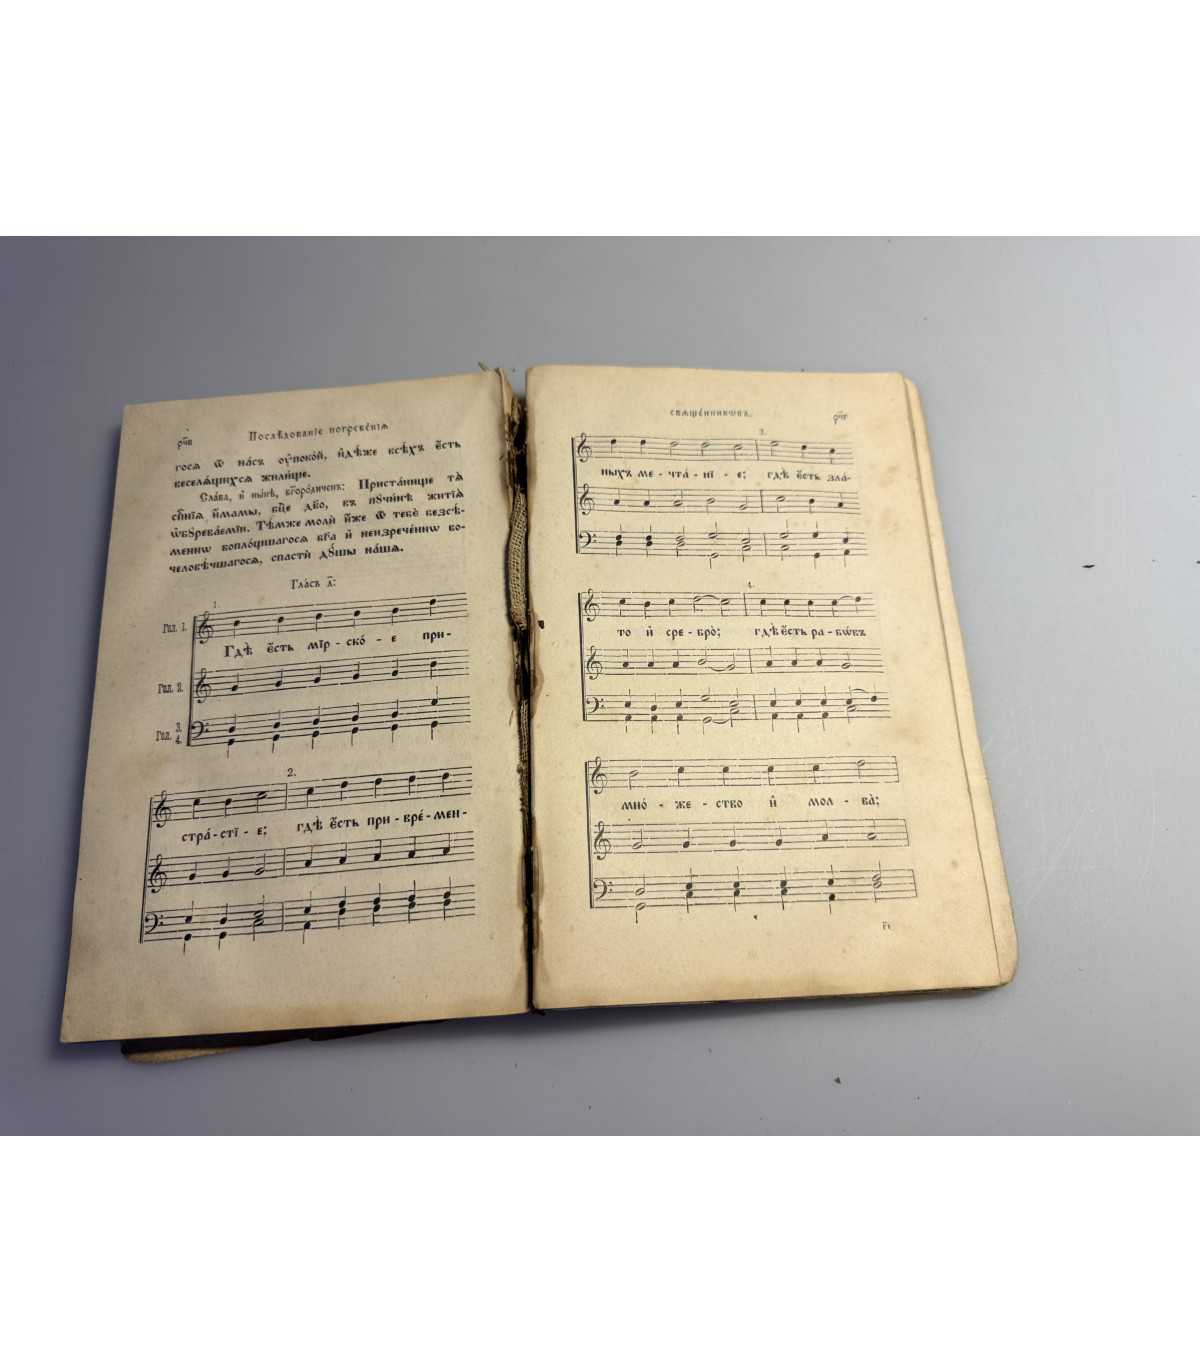 рч҃в Послѣдованїе погребенїѧ
госѧ ѿ на́съ ᲂу҆поко́й, и҆дѣ́же всѣ́хъ є҆́сть
веселѧ́щихсѧ жили́ще.
Сла́ва, и҆ ны́нѣ, бг҃оро́диченъ: Приста́нище тѧ̀
сп҃се́нїѧ и҆́мамы, бц҃е дв҃о, въ пꙋчи́нѣ житїѧ̀
ѡ҆бꙋрева́емїи. Тѣ́мже молѝ и҆́же ѿ тебѐ безсѣ́-
меннѡ воплоти́вшагосѧ бг҃а и҆ неизрече́ннѡ во-
человѣ́чшагосѧ, спастѝ дꙋ́шы на́шѧ.
Гла́съ д҃:
1.
Гол. 1.
Гдѣ̀ є҆́сть мїр-ско́-е при-
Гол. 2.
Гол. 3. 4.
2.
стра́-стї-е; гдѣ̀ є҆́сть при-вре́-мен-
свѧще́нникѡвъ. рч҃г
3.
ныхъ ме-чта́-нї-е; гдѣ̀ є҆́сть зла-
4.
то и҆ сре-бро̀; гдѣ̀ є҆́сть ра-бѡ́въ
мно́-же-ство и҆ мол-ва̀;
г҃і